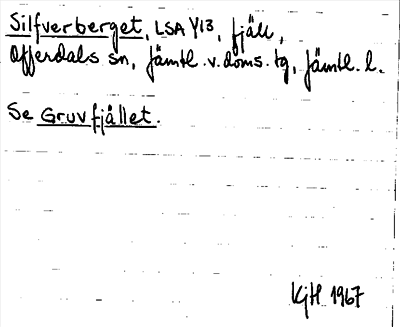 Silfverberget, LSA Y13, fjäll,
Offerdals sn, Jämtl. v. doms. tg, Jämtl. l.
Se Gruvfjället.
KjH 1967